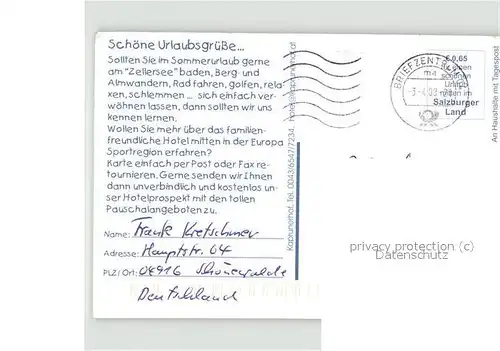 Schöne Urlaubsgrüße...
Sollten Sie im Sommerurlaub gerne
am "Zellersee" baden, Berg- und
Almwandern, Rad fahren, golfen, relax-
en, schlemmen ... sich einfach ver-
wöhnen lassen, dann sollten wir uns
kennen lernen.
Wollen Sie mehr über das familien-
freundliche Hotel mitten in der Europa
Sportregion erfahren?
Karte einfach per Post oder Fax re-
tournieren. Gerne senden wir Ihnen
dann unverbindlich und kostenlos un-
ser Hotelprospekt mit den tollen
Pauschalangeboten zu.
Name: Frank Kretschmer
Adresse: Hauptstr. 64
PLZ / Ort: 04916 Schönewalde
Deutschland
Kaprunerhof, Tel. 0043/6547/7234, hotel@kaprunerhof.at
BRIEFZENTRUM
€ 0,65
schönen
Urlaub
Salzburger
Land
An Haushalte mit Tagespost
privacy protection (c)
Datenschutz